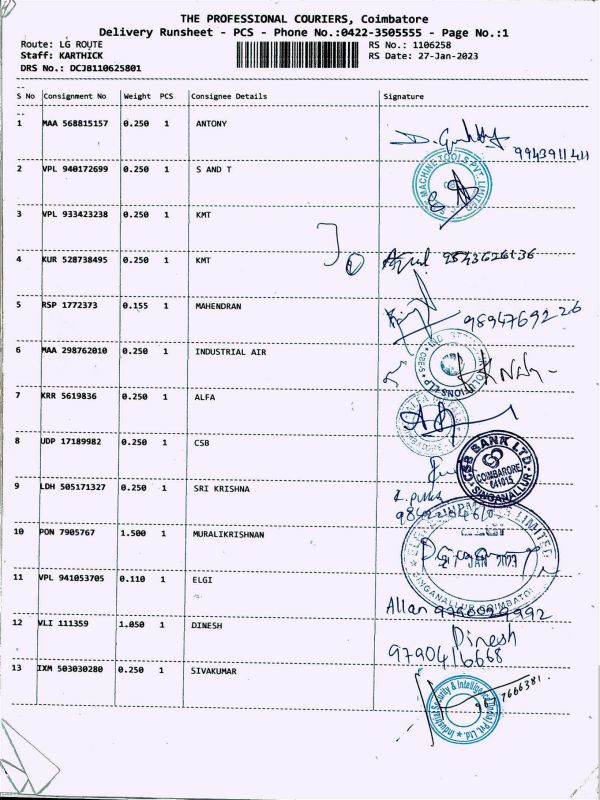 THE PROFESSIONAL COURIERS, Coimbatore
Delivery Runsheet - PCS - Phone No.:0422-3505555 - Page No.:1
Route: LG ROUTE RS No.: 1106258
Staff: KARTHICK RS Date: 27-Jan-2023
DRS No.: DCJB110625801
S No Consignment No Weight PCS Consignee Details Signature
1 MAA 568815157 0.250 1 ANTONY
9943911411
2 VPL 940172699 0.250 1 S AND T
MACHINE TOOLS PVT. LIMITED
3 VPL 933423238 0.250 1 KMT
4 KUR 528738495 0.250 1 KMT
5 RSP 1772373 0.155 1 MAHENDRAN
9894769226
6 MAA 298762010 0.250 1 INDUSTRIAL AIR
SOLUTIONS LLP
7 KRR 5619836 0.250 1 ALFA
ALFA
8 UDP 17189982 0.250 1 CSB
CSB BANK LTD.
COIMBARORE
641015
SINGANALLUR
9 LDH 505171327 0.250 1 SRI KRISHNA
10 PON 7905767 1.500 1 MURALIKRISHNAN
LIMITED
ELGI
JAN 2023
SINGANALLUR COIMBATORE
11 VPL 941053705 0.110 1 ELGI
Allan
12 VLI 111359 1.050 1 DINESH
Dinesh
9790416668
13 IXM 503030280 0.250 1 SIVAKUMAR
Industrial Security & Intelligence India Pvt. Ltd.
7666381